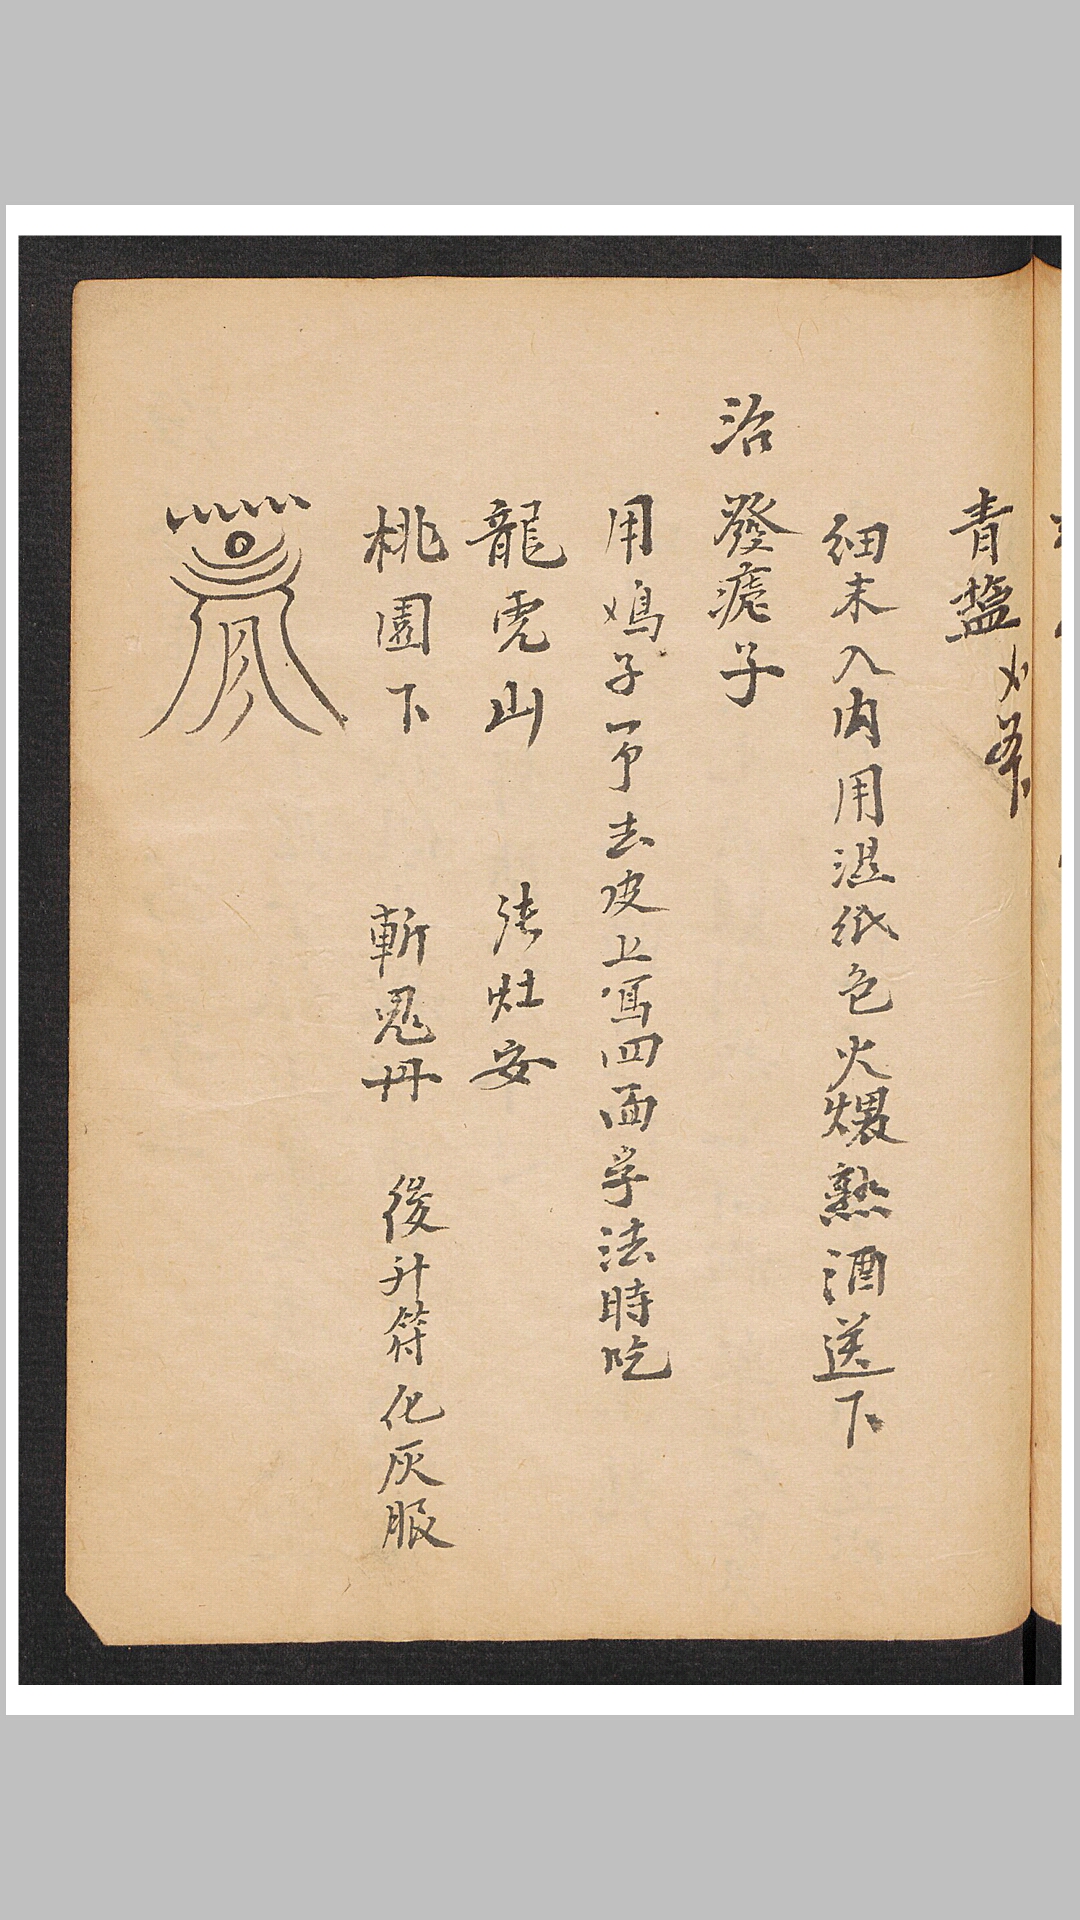 青盬
細末入內用濕紙包火煨熟酒送下
治發瘧子
用鳮子一个去皮上写四面字法時吃
龍虎山 張灶安
桃園下 斬鬼丹 後升符化灰服